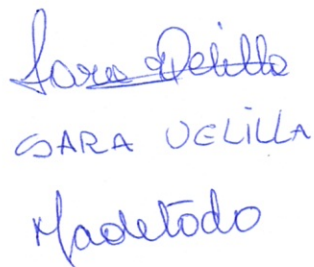 Sara Velilla
SARA VELILLA
Madetodo